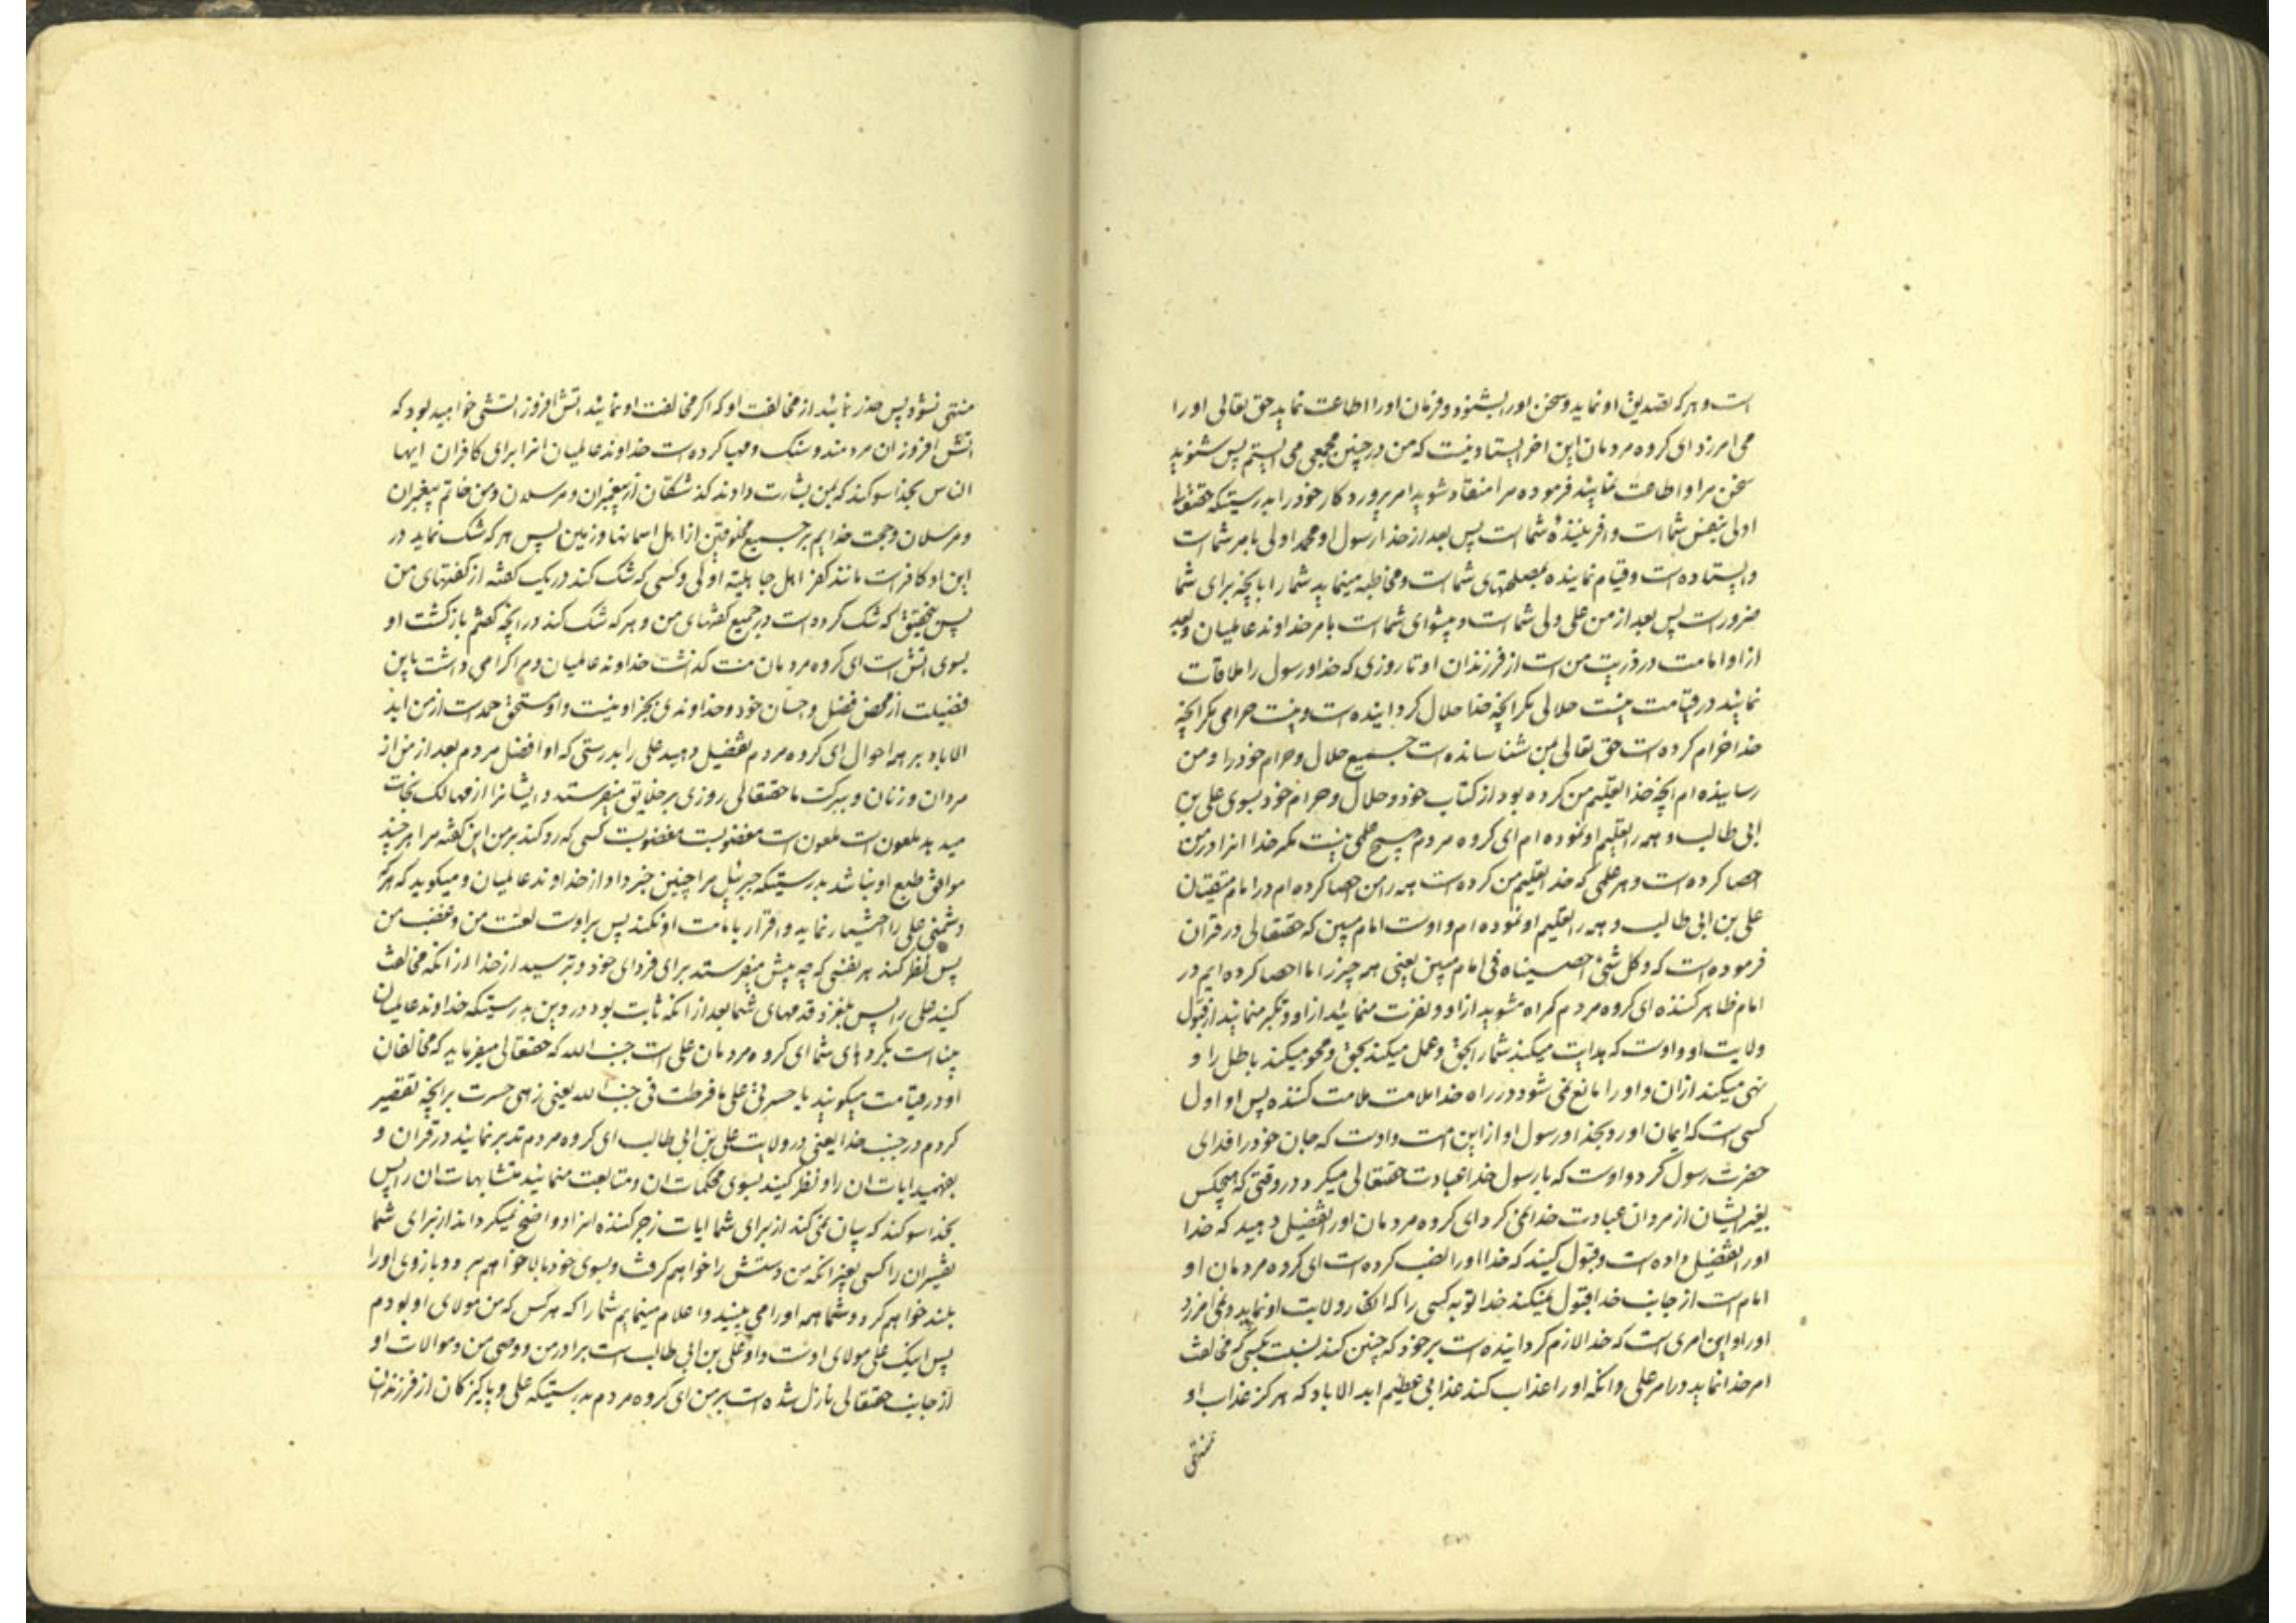 است و هر که تصدیق او نماید و سخن او را بشنود و فرمان او را اطاعت نماید حق تعالی او را
می امرزد ای کروه مردمان این اخر ایستادنیست که من در چنین مجمعی می ایستم پس بشنوید
سخن مرا و اطاعت نمایید فرموده مرا منقاد شوید امر پروردکار خود را بدرستیکه حقتعالی
اولی بنفس شما است و افریننده شما است پس بعد از خدا رسول او محمد اولی بامر شما است
و ایستاده است و قیام نماینده بمصلحتهای شما است و مخاطبه مینماید شما را بانچه برای شما
ضرور است پس بعد از من علی ولی شما است و پیشوای شما است بامر خداوند عالمیان و بعد
از او امامت در ذریت من است از فرزندان او تا روزی که خدا و رسول را ملاقات
نمایید در قیامت نیست حلالی مکر انچه خدا حلال کردانیده است و نیست حرامی مکر انچه
خدا حرام کرده است حق تعالی بمن شناسانده است جمیع حلال و حرام خود را و من
رسانیده ام انچه خدا تعلیم من کرده بود از کتاب خود و حلال و حرام خود بسوی علی بن
ابی طالب و همه را تعلیم او نموده ام ای کروه مردم هیچ علمی نیست مکر خدا انرا در من
احصا کرده است و هر علمی که خدا تعلیم من کرده است همه را من احصا کرده ام در امام متقیان
علی بن ابی طالب و همه را تعلیم او نموده ام و اوست امام مبین که حقتعالی در قران
فرموده است که و کل شیء احصیناه فی امام مبین یعنی همه چیز را ما احصا کرده ایم در
امام ظاهر کننده ای کروه مردم کمراه مشوید از او و نفرت منمایید از او و تکبر منمایید از قبول
ولایت او و اوست که هدایت میکند شما را بحق و عمل میکند بحق و محو میکند باطل را و
نهی میکند از ان و او را مانع نمی شود در راه خدا ملامت ملامت کننده پس او اول
کسی است که ایمان اورد بخدا و رسول او از این امت و اوست که جان خود را فدای
حضرت رسول کرد و اوست که با رسول خدا عبادت حقتعالی میکرد در وقتی که هیچکس
بغیر ایشان از مردان عبادت خدا نمی کرد ای کروه مردمان او را تفضیل دهید که خدا
او را تفضیل داده است و قبول کنید که خدا او را نصب کرده است ای کروه مردمان او
امام است از جانب خدا قبول نمیکند خدا توبه کسی را که انکار ولایت او نماید و نمی امرزد
او را و این امری است که خدا لازم کردانیده است بر خود که چنین کند نسبت بکسی که مخالفت
امر خدا نماید در امر علی و انکه او را عذاب کند عذابی عظیم ابد الاباد که هرکز عذاب او
منتهی
منتهی نشود پس حذر نمایید از مخالفت او که اکر مخالفت او نمایید اتش افروز اتشی خواهید بود که
اتش افروز ان مردمند و سنک و مهیا کرده است خداوند عالمیان انرا برای کافران ایها
الناس بخدا سوکند که بمن بشارت دادند کذشتکان از پیغمبران و مرسلان و من خاتم پیغمبران
و مرسلان و حجت خدایم بر جمیع مخلوقین از اهل اسمانها و زمین پس هر که شک نماید در
این او کافر است مانند کفر اهل جاهلیة اولی و کسی که شک کند در یک کفته از کفتهای من
پس بتحقیق که شک کرده است در جمیع کفتهای من و هر که شک کند در انچه کفتم بازکشت او
بسوی اتش است ای کروه مردمان منت کذشت خداوند عالمیان و مرا کرامی داشت باین
فضیلت از محض فضل و احسان خود و خداوندی بجز او نیست و او مستحق حمد است از من ابد
الاباد بر همه احوال ای کروه مردم تفضیل دهید علی را بدرستی که او افضل مردم بعد از من از
مردان و زنان و ببرکت ما حقتعالی روزی بر خلایق میفرستد و ایشانرا از مهالک نجات
میدهد ملعون است ملعون است مغضوبست مغضوبست کسی که رد کند بر من این کفته مرا هر چند
موافق طبع او نباشد بدرستیکه جبرئیل مرا چنین خبر داد از خداوند عالمیان و میکوید که هر که
دشمنی علی را اختیار نماید و اقرار بامامت او نکند پس بر اوست لعنت من و غضب من
پس نظر کند هر نفسی که چه پیش میفرستد برای فردای خود و بترسید از خدا از انکه مخالفت
کنید علی را پس بلغزد قدمهای شما بعد از انکه ثابت بود در دین بدرستیکه خداوند عالمیان
بیناست بکردهای شما ای کروه مردمان علی است جنب الله که حقتعالی میفرماید که مخالفان
او در قیامت میکویند یا حسرتی علی ما فرطت فی جنب الله یعنی زهی حسرت بر انچه تقصیر
کردم در جنب خدا یعنی در ولایت علی بن ابی طالب ای کروه مردم تدبر نمایید در قران و
بفهمید ایات ان را و نظر کنید بسوی محکمات ان و متابعت منمایید متشابهات ان را پس
بخدا سوکند که بیان نمی کند از برای شما ایات زجر کننده انرا و واضح نمیکرداند از برای شما
تفسیر ان را کسی بغیر انکه من دستش را خواهم کرفت و بسوی خود بالا خواهم برد و بازوی او را
بلند خواهم کرد و شما همه او را می بینید و اعلام مینمایم شما را که هر کس که من مولای او بودم
پس اینک علی مولای اوست و او علی بن ابی طالب است برادر من و وصی من و موالات او
از جانب حقتعالی نازل شده است بر من ای کروه مردم بدرستیکه علی و پاکیزکان از فرزندان